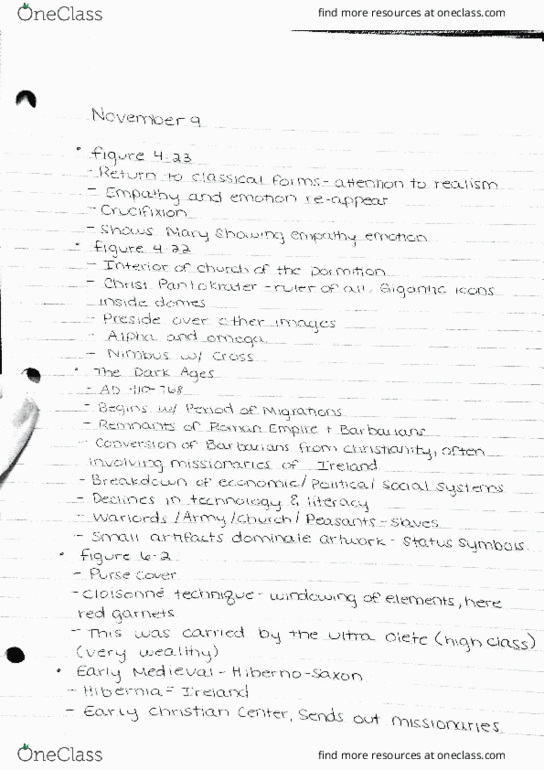 OneClass
find more resources at oneclass.com
November 9
• figure 4-23
- Return to classical forms - attention to realism
- Empathy and emotion re-appear
- Crucifixion
- Shows Mary showing empathy emotion
• figure 4-22
- Interior of church of the Dormition
- Christ Pantokrater - ruler of all. Gigantic icons
inside domes
- Preside over other images
- Alpha and omega
- Nimbus w/ Cross
• The Dark Ages
- AD 410-768
- Begins w/ Period of Migrations
- Remnants of Roman Empire + Barbarians
- Conversion of Barbarians from christianity, often
involving missionaries of Ireland
- Breakdown of economic/Political/Social systems
- Declines in technology & literacy
- Warlords/Army/Church/Peasants - Slaves
- Small artifacts dominate artwork - Status symbols
• figure 6-2
- Purse cover
- cloisonné technique - windowing of elements, here
red garnets
- This was carried by the ultra Oiete (high class)
(very wealthy)
• Early Medieval - Hiberno-Saxon
- Hibernia = Ireland
- Early Christian Center, Sends out missionaries
OneClass
find more resources at oneclass.com